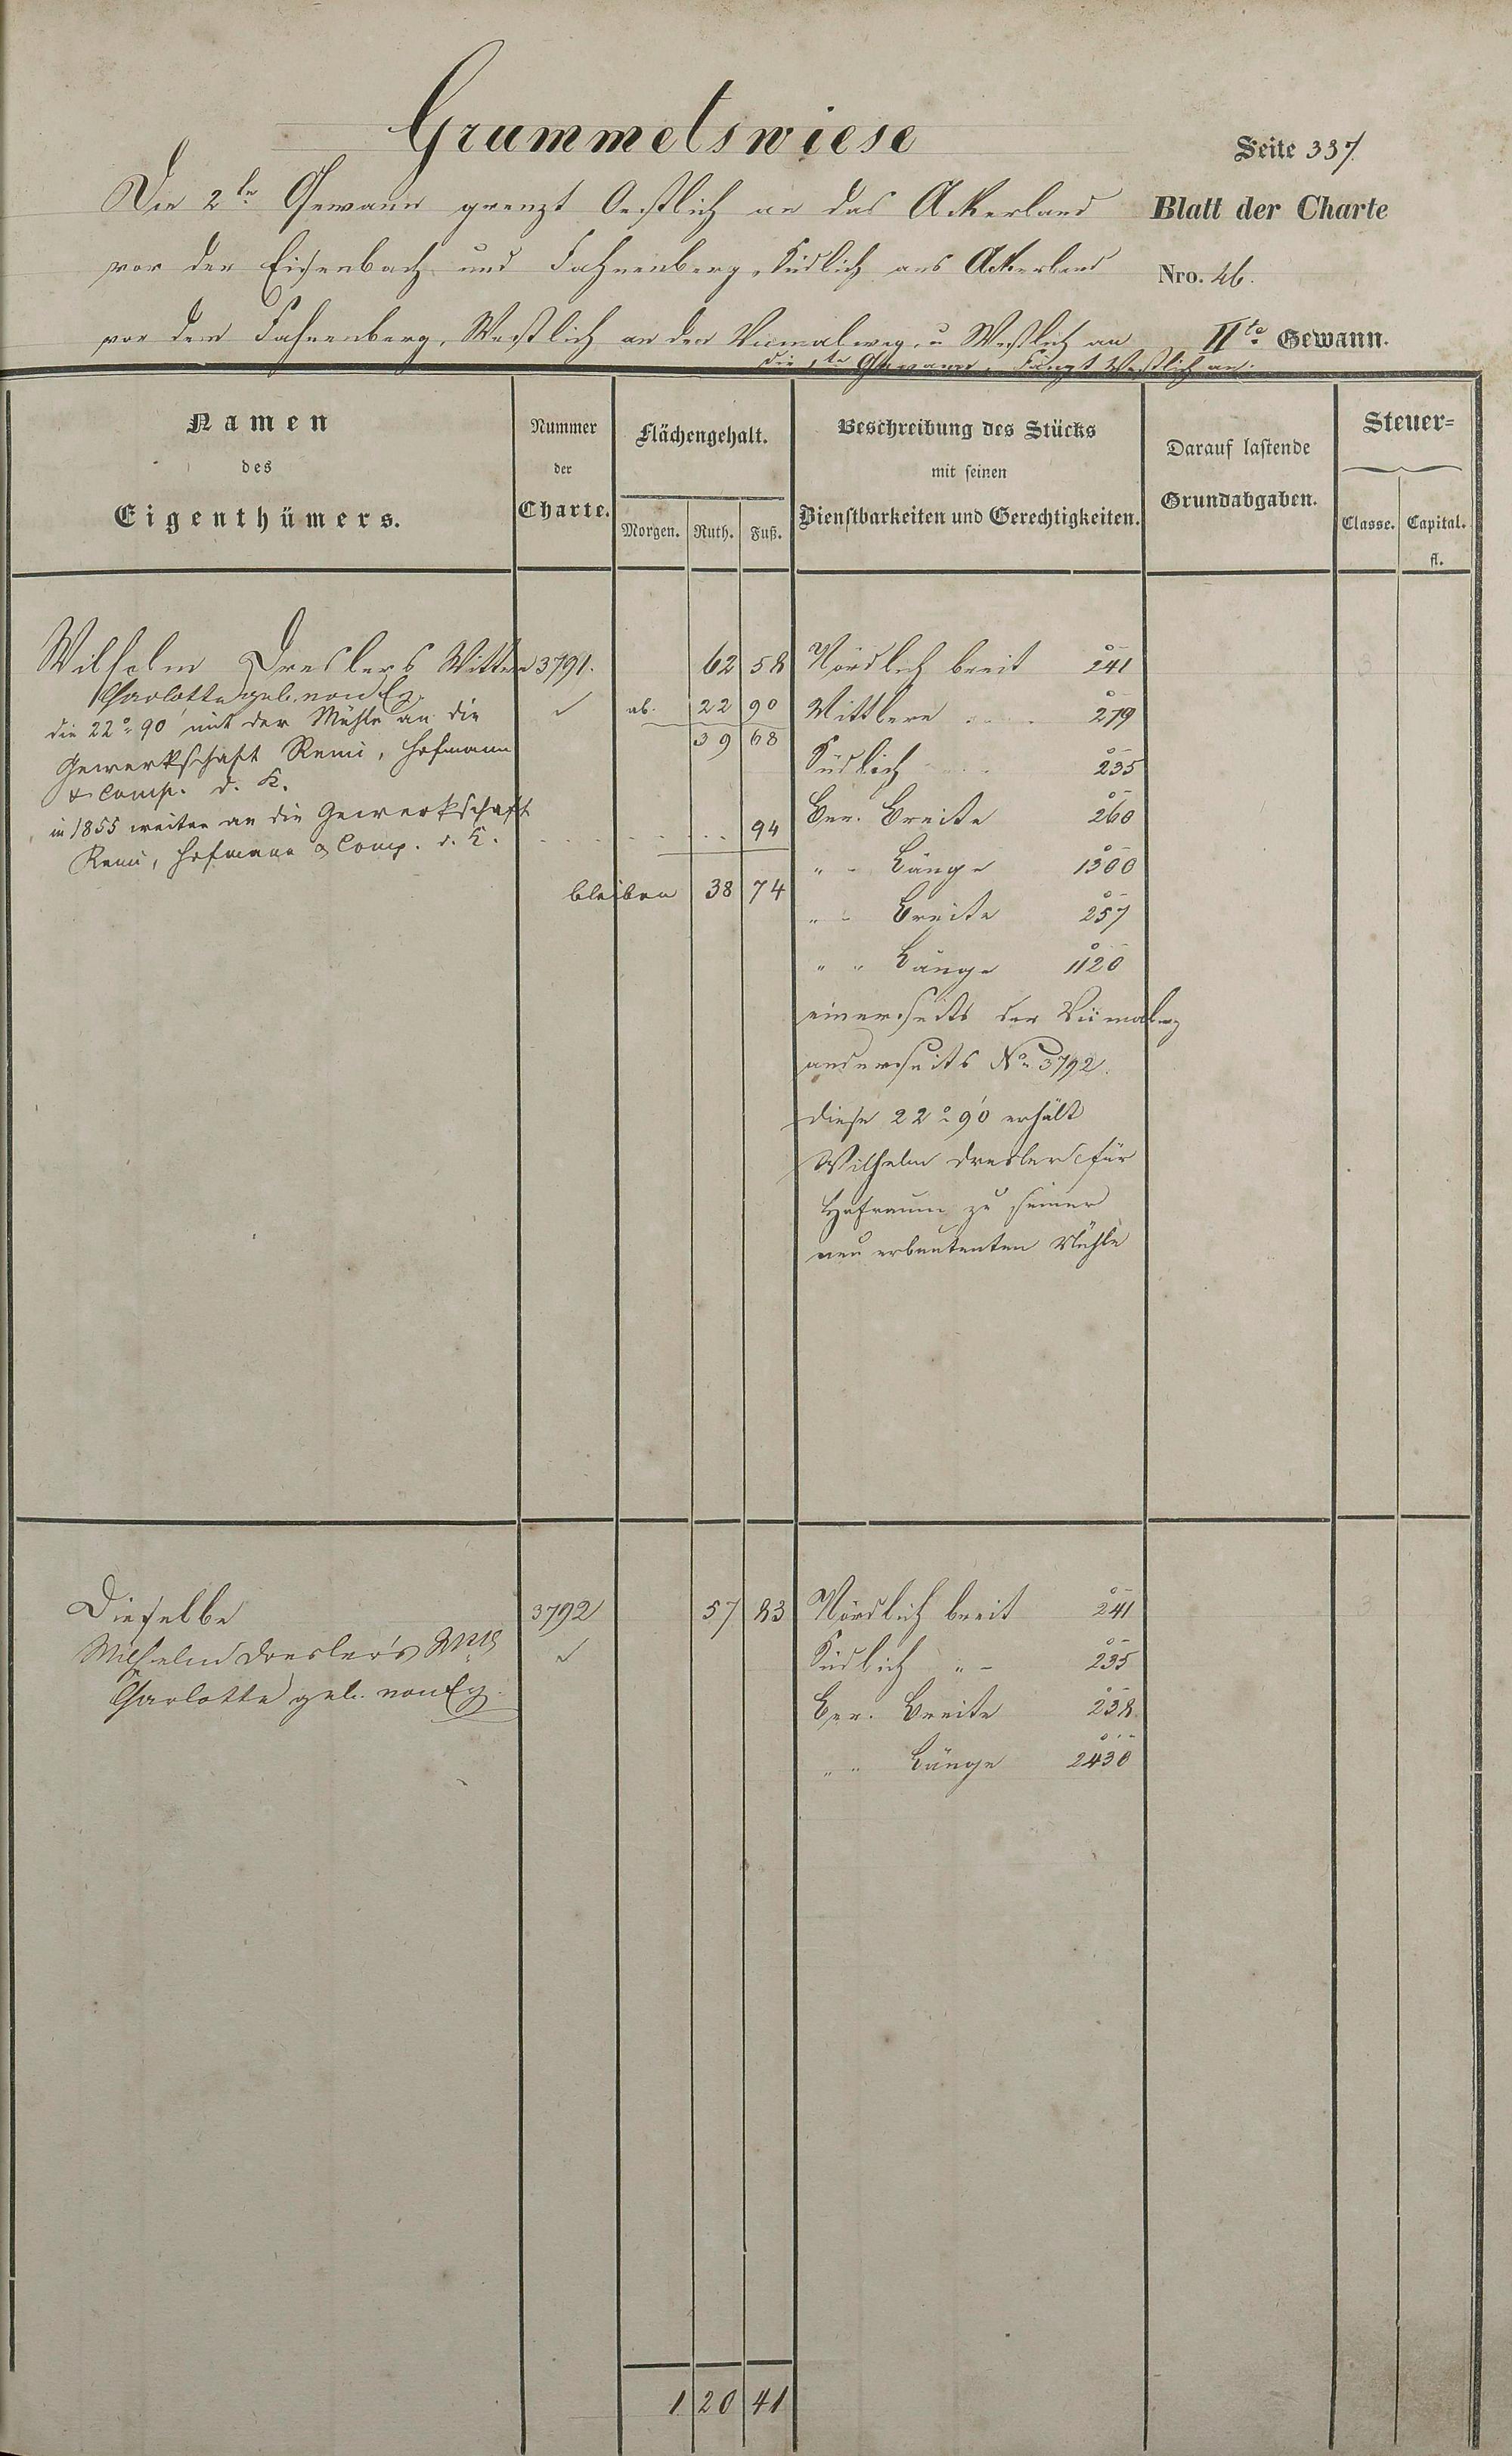 Grummetswiese
Seite 337
Die 2te Gewann grenzt Oestlich an das Ackerland
Blatt der Charte
vor der Eisenbach und Fahnenberg, Südlich ans Ackerland
Nro. 46.
vor dem Fahnenberg, Westlich an den Vicinalweg, u Westlich an
IIte Gewann.
die 1te Gewann. Fängt Westlich an.
Namen
des
Eigenthümers.
Nummer
der
Charte.
Flächengehalt.
Morgen. Ruth. Fuß.
Beschreibung des Stücks
mit seinen
Dienstbarkeiten und Gerechtigkeiten.
Darauf lastende
Grundabgaben.
Steuer=
Classe. Capital.
fl.
Wilhelm Dreslers Wittwe 3791. 62 58 Nördlich breit 241
Charlotte geb. von Eg.
die 22° 90' mit der Mühle an die
Gewerkschaft Remi, Hofmann
& Comp. d. K.
in 1855 weiter an die Gewerkschaft
Remi, Hofmann & Comp. d. K.
ab. 22 90
39 68
94
bleiben 38 74
Mittlere 279
Südlich 235
Ber. Breite 260
" " Länge 1300
" " Breite 257
" " Länge 1120
einerseits der Vicinalweg
anderseits No 3792.
diese 22° 90' erhält
Wilhelm Dresler für
Hofraum zu seiner
neu erbauten Mühle
Dieselbe 3792 57 83 Nördlich breit 241
Wilhelm Dresler's Wtb
Charlotte geb. von Eg.
Südlich " " 235
Ber. Breite 238
" " Länge 2430
1 20 41